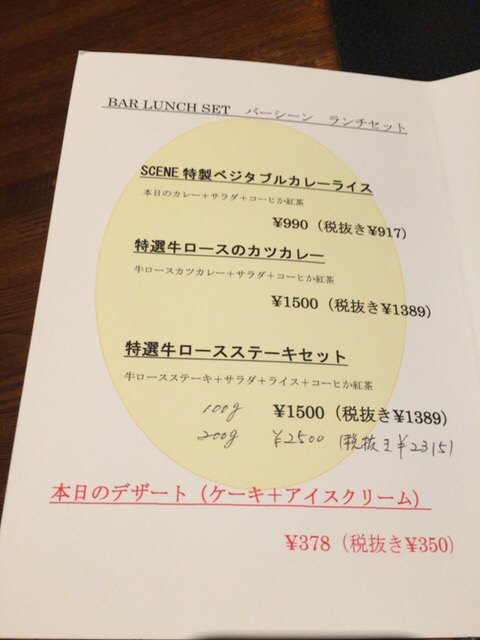 BAR LUNCH SET バーシーン ランチセット
SCENE 特製ベジタブルカレーライス
本日のカレー＋サラダ＋コーヒか紅茶
¥990（税抜き¥917）
特選牛ロースのカツカレー
牛ロースカツカレー＋サラダ＋コーヒか紅茶
¥1500（税抜き¥1389）
特選牛ロースステーキセット
牛ロースステーキ＋サラダ＋ライス＋コーヒか紅茶
100g ¥1500（税抜き¥1389）
200g ¥2500（税抜き¥2315）
本日のデザート（ケーキ＋アイスクリーム）
¥378（税抜き¥350）